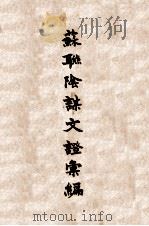 蘇聯陰謀文證彙編
mtoou.info